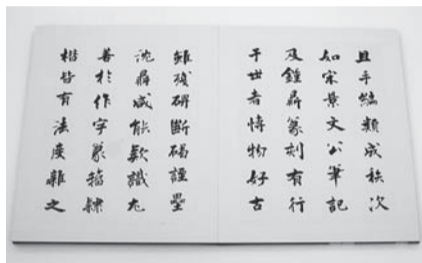 且手編類成秩次
如宋景文公筆記
及鍾鼎篆刻有行
于世者博物好古
雖殘碑斷碣壘
洗鼎咸能款識尤
善於作字篆籀隸
楷皆有法度雜之